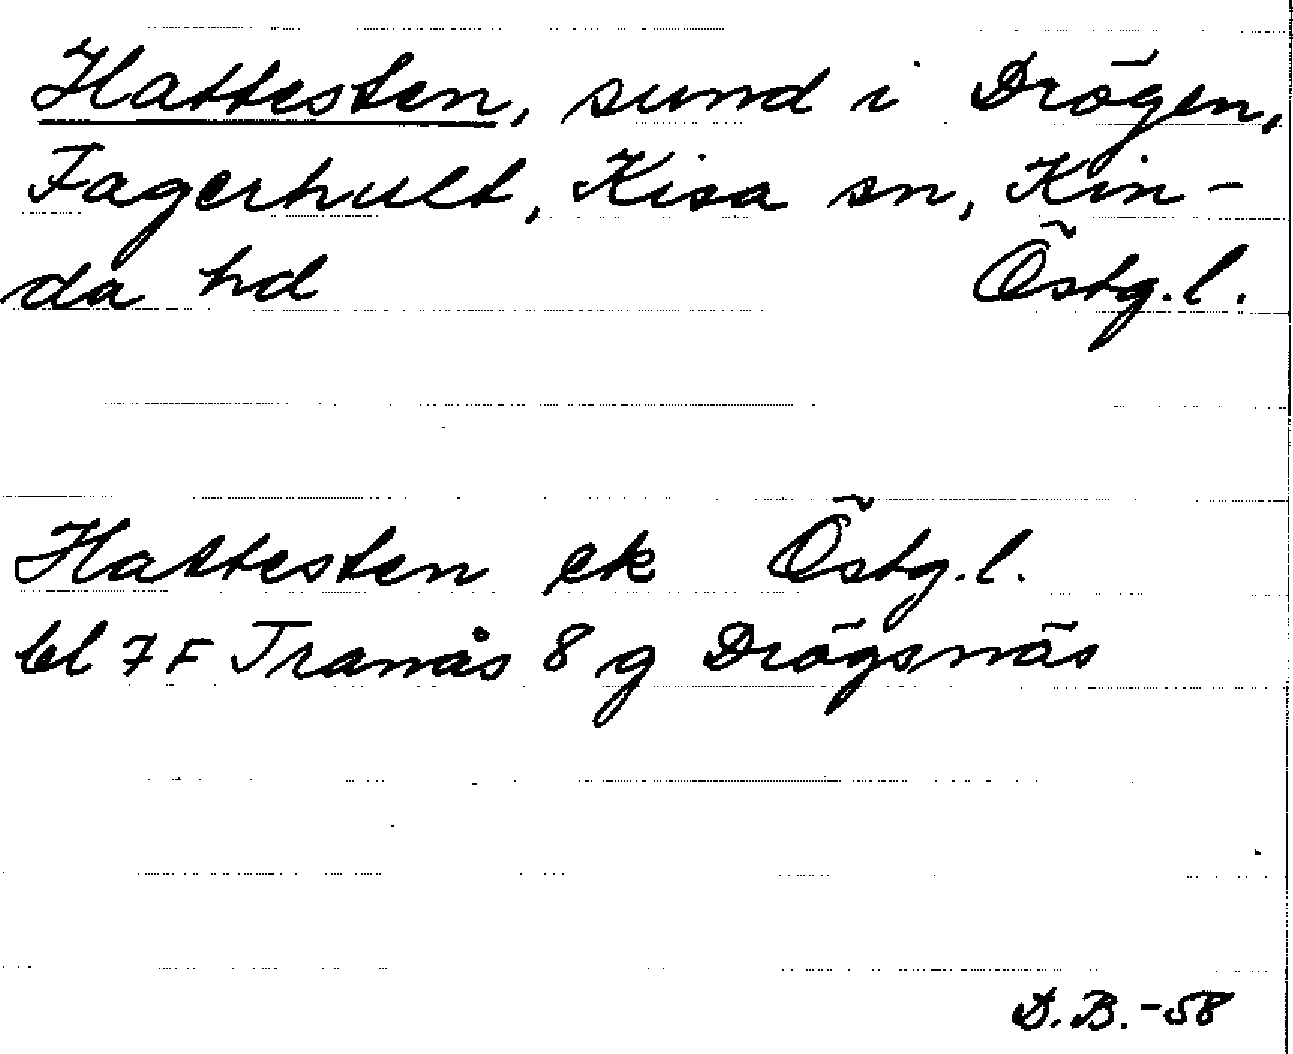 Hattesten, sund i Drögen,
Fagerhult, Kisa sn, Kin-
da hd Östg.l.
Hattesten ek Östg.l.
bl 7 F Tranås 8 g Drögsnäs
D.B.-58